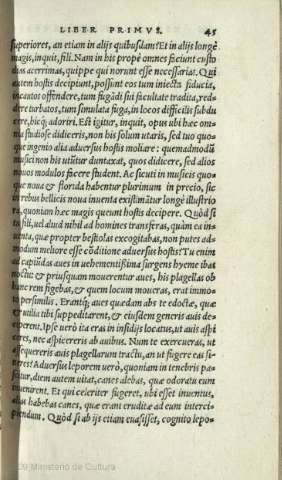 LIBER PRIMVS. 45
superiores, an etiam in alijs quibusdam? Et in alijs longè
magis, inquit, fili. Nam in his propè omnes faciunt custo
dias acerrimas, quippe qui norunt esse necessarias. Qui
autem hostis decipiunt, possunt eos tum iniecta fiducia,
incautos offendere, tum fugādi sui facultate tradita, red=
dere turbatos, tum simulata fuga, in locos difficilis subdu
cere, hicq́; adoriri. Est igitur, inquit, opus ubi hæc om=
nia studiose didiceris, non his solum utaris, sed tuo quo=
que ingenio alia aduersus hostis moliare: quemadmodū
musici non his utūtur duntaxat, quos didicere, sed alios
nouos modulos facere student. Ac sicuti in musicis quo=
que noua & florida habentur plurimum in precio, sic
in rebus bellicis noua inuenta existimātur longè illustrio
ra, quoniam hæc magis queunt hostis decipere. Quòd si
tu fili, uel aliud nihil ad homines transferas, quàm ea in=
uenta, quæ propter bestiolas excogitabas, non putes ad=
modum meliore esse cōditione aduersus hostis? Tu enim
ad capiūdas aues in uehementissima surgens hyeme ibas
noctu: & priusquam mouerentur aues, his plagellas ob
hunc rem figebas, & quem locum moueras, erat immo=
to persimilis. Erantq́; aues quædam abs te edoctæ, quæ
& utilia tibi suppeditarent, & eiusdem generis auis de=
ciperent. Ipse uerò ita eras in insidijs locatus, ut auis aspi
ceres, nec aspicereris ab auibus. Num te exercueras, ut
assequereris auis plagellarum tractu, antequam fugere eas si=
neres? Aduersus leporem uerò, quoniam in tenebris pa=
scitur, diem autem uitat, canes alebas, quæ odoratu eum
inuenirent. Et qui celeriter fugeret, ubi esset inuentus,
alias habebas canes, quæ erant eruditæ ad eum interci=
piendum. Quòd si ab ijs etiam euasisset, cognito lepo=
Ministerio de Cultura